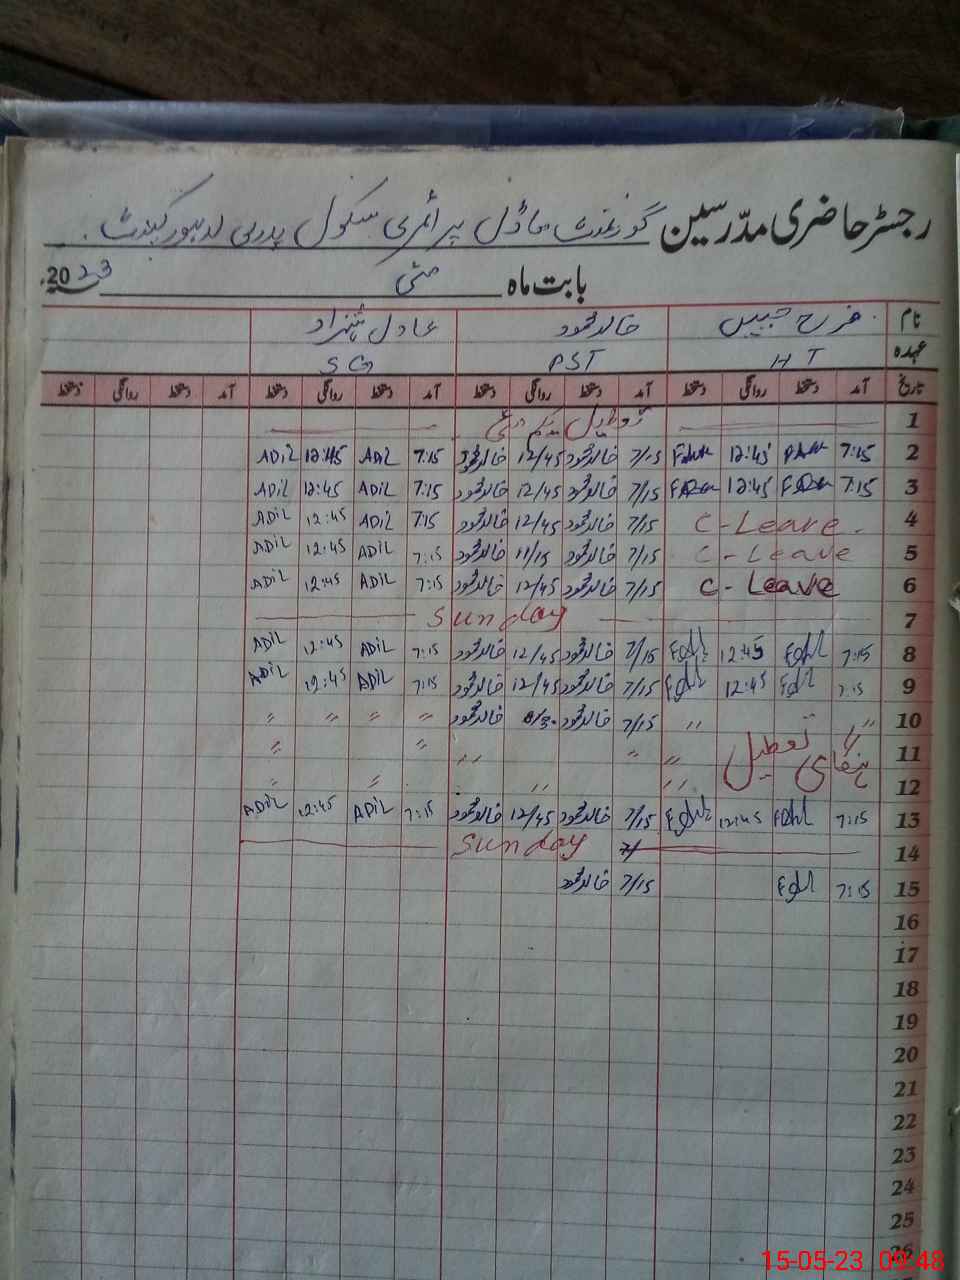 رجسٹر حاضری مدرسین گورنمنٹ ماڈل پرائمری سکول لاہور کینٹ
بابت ماہ مئی 2023
نام فرح خالد محمود عادل شہزاد
عہدہ HT PST SG
تاریخ آمد دستخط روانگی دستخط آمد دستخط روانگی دستخط آمد دستخط روانگی دستخط آمد دستخط روانگی دستخط
1 تعطیل یکم مئی
2 7:15 12:45 7/15 خالد محمود 12/45 خالد محمود 7:15 ADIL 12:45 ADIL
3 7:15 12:45 7/15 خالد محمود 12/45 خالد محمود 7:15 ADIL 12:45 ADIL
4 C-Leave 7/15 خالد محمود 12/45 خالد محمود 7:15 ADIL 12:45 ADIL
5 C-Leave 7/15 خالد محمود 11/15 خالد محمود 7:15 ADIL 12:45 ADIL
6 C-Leave 7/15 خالد محمود 12/45 خالد محمود 7:15 ADIL 12:45 ADIL
7 Sunday
8 7:15 12:45 7/15 خالد محمود 12/45 خالد محمود 7:15 ADIL 12:45 ADIL
9 7:15 12:45 7/15 خالد محمود 12/45 خالد محمود 7:15 ADIL 12:45 ADIL
10 〃 〃 7/15 خالد محمود خالد محمود 〃 〃 〃 〃
11 ہنگامی تعطیل 〃 〃 〃 〃 〃
12 〃 〃 〃 〃
13 7:15 12:45 7/15 خالد محمود 12/45 خالد محمود 7:15 ADIL 12:45 ADIL
14 Sunday
15 7:15 7/15 خالد محمود
16
17
18
19
20
21
22
23
24
25
26
15-05-23 09:48